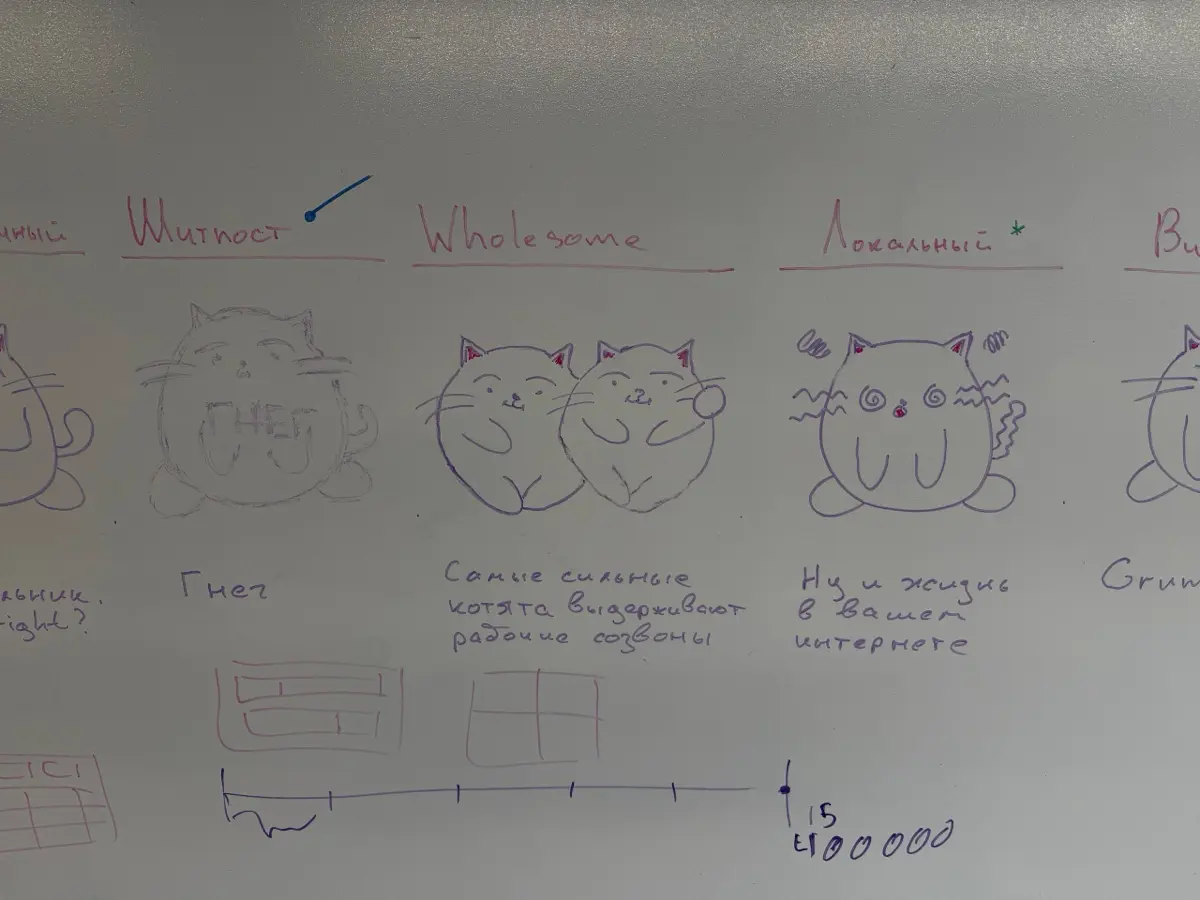 чный
Шитпост
Wholesome
Локальный *
Ви
ГНЕГ
Гнег
льник.
right?
Самые сильные
котята выдерживают
рабочие созвоны
Ну и жизнь
в вашем
интернете
Grum
15